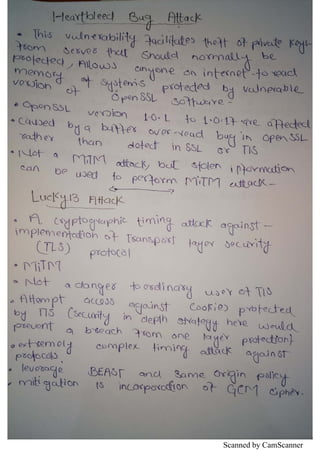 Heartbleed Bug Attack
• This vulnerability facilitates theft of private keys
from server that should normally be
protected, Allows anyone on internet to read
memory of systems protected by vulnerable
version of OpenSSL software -
• OpenSSL version 1.0.1 to 1.0.1f are affected
• Caused by a buffer over-read bug in open SSL
rather than defect in SSL or TLS
• Not a MiTM attack, but stolen information
can be used to perform MiTM attack -
Lucky13 Attack
• A cryptographic timing attack against -
implementation of Transport layer security
(TLS) protocol
• MiTM
• Not a danger to ordinary user of TLS
• Attempt access against Cookies protected
by TLS (Security in depth strategy here would
prevent a breach from one layer protection)
• extremely complex timing attack against
protocols.
• leverage BEAST and same origin policy
• mitigation is incorporation of GCM cipher.
Scanned by CamScanner